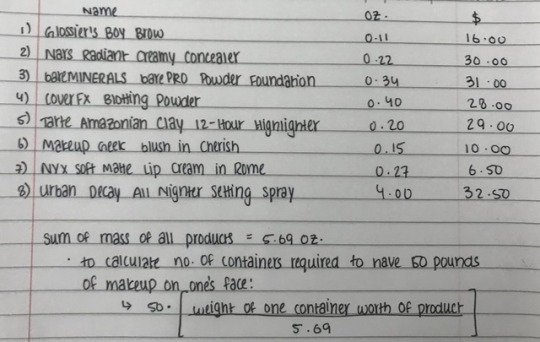 Name OZ. $
1) Glossier's Boy Brow 0.11 16.00
2) Nars Radiant Creamy Concealer 0.22 30.00
3) bareMINERALS barePRO Powder Foundation 0.34 31.00
4) CoverFX Blotting Powder 0.40 28.00
5) Tarte Amazonian Clay 12-Hour Highlighter 0.20 29.00
6) Makeup Geek blush in Cherish 0.15 10.00
7) NYX Soft Matte Lip Cream in Rome 0.27 6.50
8) Urban Decay All Nighter Setting Spray 4.00 32.50
Sum of mass of all products = 5.69 OZ.
· to calculate no. of containers required to have 50 pounds
of makeup on one's face:
↳ 50 · [weight of one container worth of product
5.69]